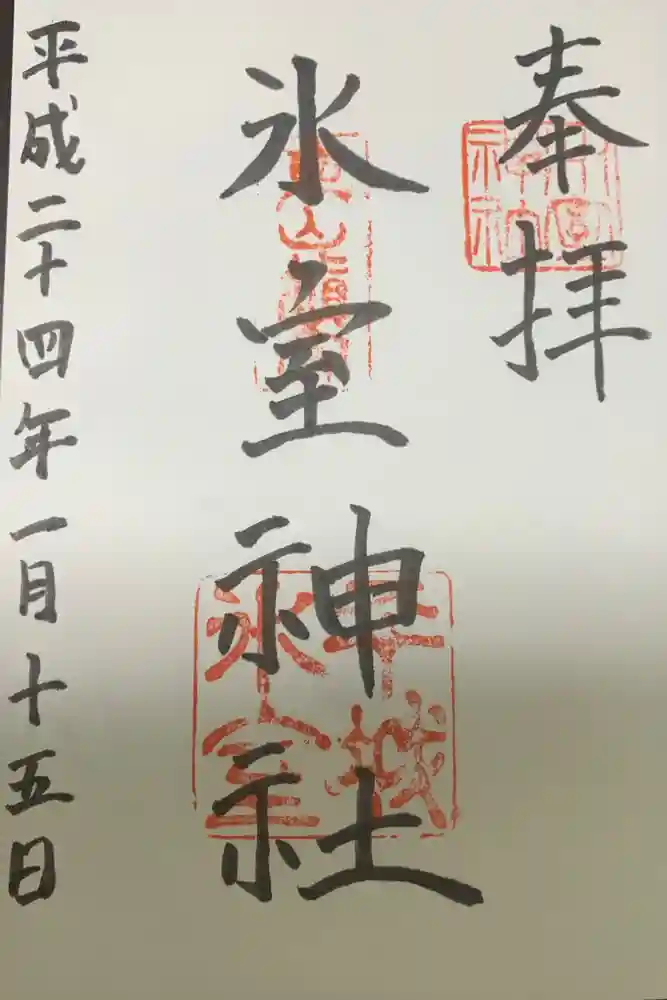 奉拝
氷室神社
平成二十四年一月十五日
平城
氷室